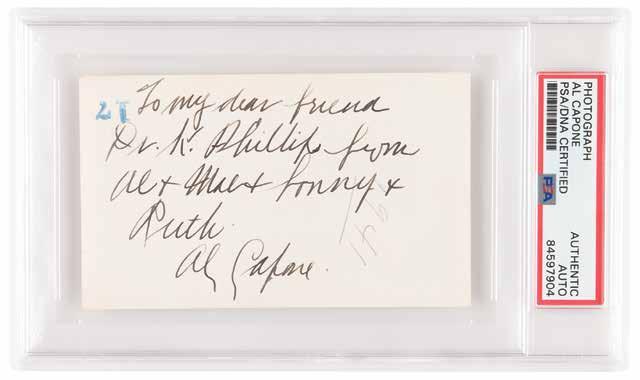 To my dear friend
Dr. K. Phillips from
Al & Mae & Sonny &
Ruth.
Al Capone.
PHOTOGRAPH
AL CAPONE
PSA/DNA CERTIFIED
PSA
AUTHENTIC
AUTO
84597904